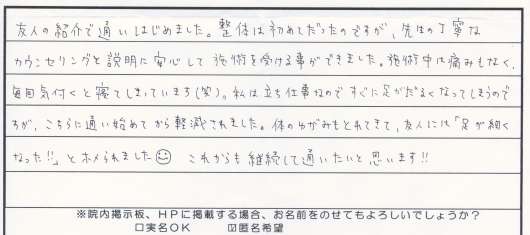 友人の紹介で通いはじめました。整体は初めてだったのですが、先生の丁寧な
カウンセリングと説明に安心して施術を受ける事ができました。施術中は痛みもなく、
毎回気付くと寝てしまっています(笑)。私は立ち仕事なのですぐに足がだるくなってしまうので
すが、こちらに通い始めてから軽減されました。体のゆがみもとれてきて、友人には「足が細く
なった!!」とホメられました☺ これからも継続して通いたいと思います!!
※院内掲示板、HPに掲載する場合、お名前をのせてもよろしいでしょうか?
□実名OK ☑匿名希望